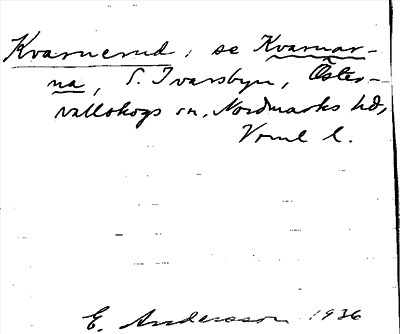 Kvarnerud, se Kvarnar-
na, S. Ivarsbyn, Öster-
vallskogs sn, Nordmarks hd,
Vrml l.
E. Andersson 1936